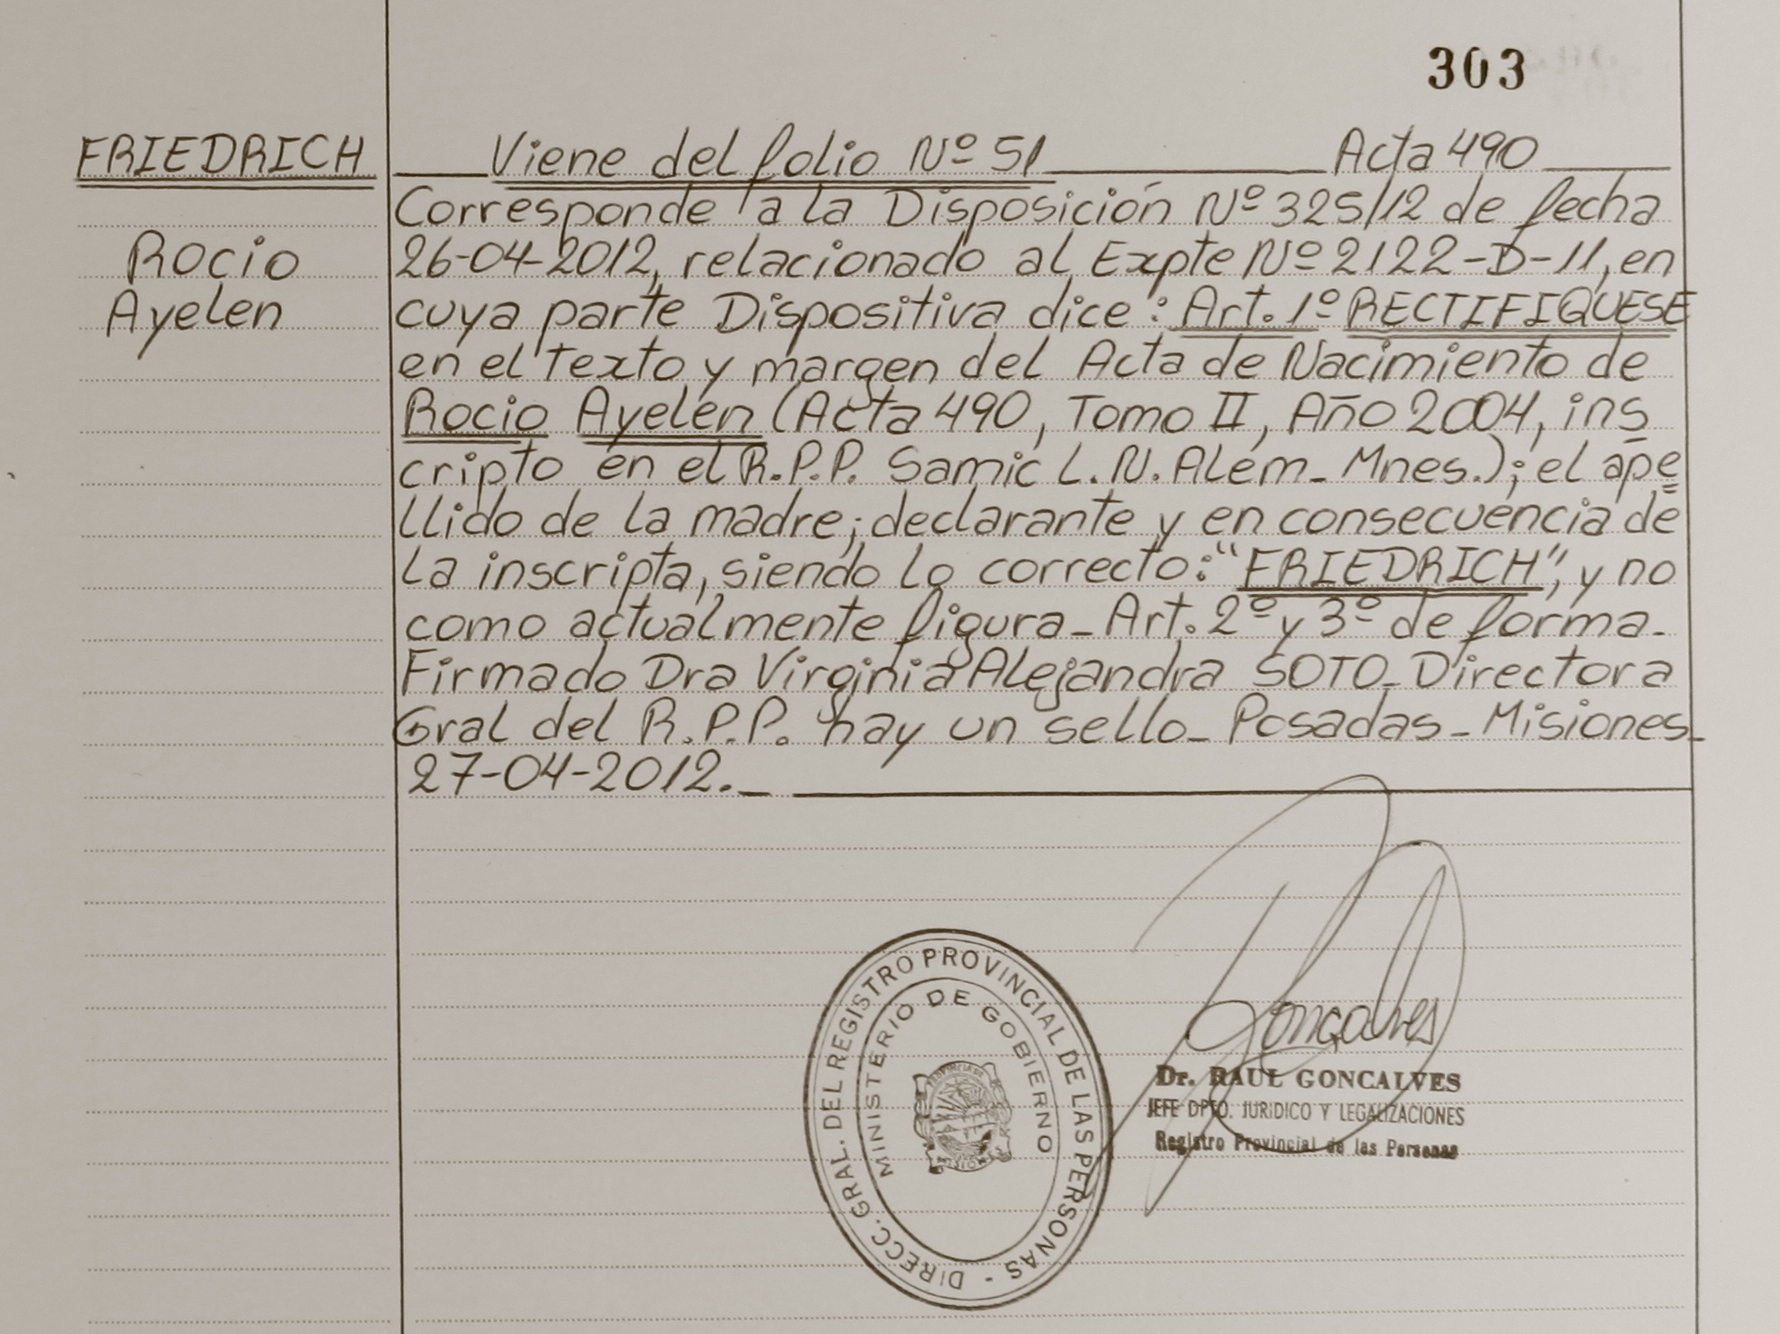 303
FRIEDRICH
Rocio
Ayelen
Viene del folio Nº 51 Acta 490
Corresponde a la Disposición Nº 325/12 de fecha
26-04-2012, relacionado al Expte Nº 2122-D-11, en
cuya parte Dispositiva dice: Art. 1º RECTIFIQUESE
en el Texto y margen del Acta de Nacimiento de
Rocio Ayelen (Acta 490, Tomo II, Año 2004, ins
cripto en el R.P.P. Samic L.N. Alem - Mnes.); el ape
llido de la madre, declarante y en consecuencia de
la inscripta, siendo lo correcto: "FRIEDRICH", y no
como actualmente figura - Art. 2º y 3º de forma.
Firmado Dra Virginia Alejandra SOTO - Directora
Gral del R.P.P. hay un sello - Posadas - Misiones
27-04-2012.
DIRECC. GRAL. DEL REGISTRO PROVINCIAL DE LAS PERSONAS -
MINISTERIO DE GOBIERNO
Goncalves
Dr. RAUL GONCALVES
JEFE DPTO. JURIDICO Y LEGALIZACIONES
Registro Provincial de las Personas